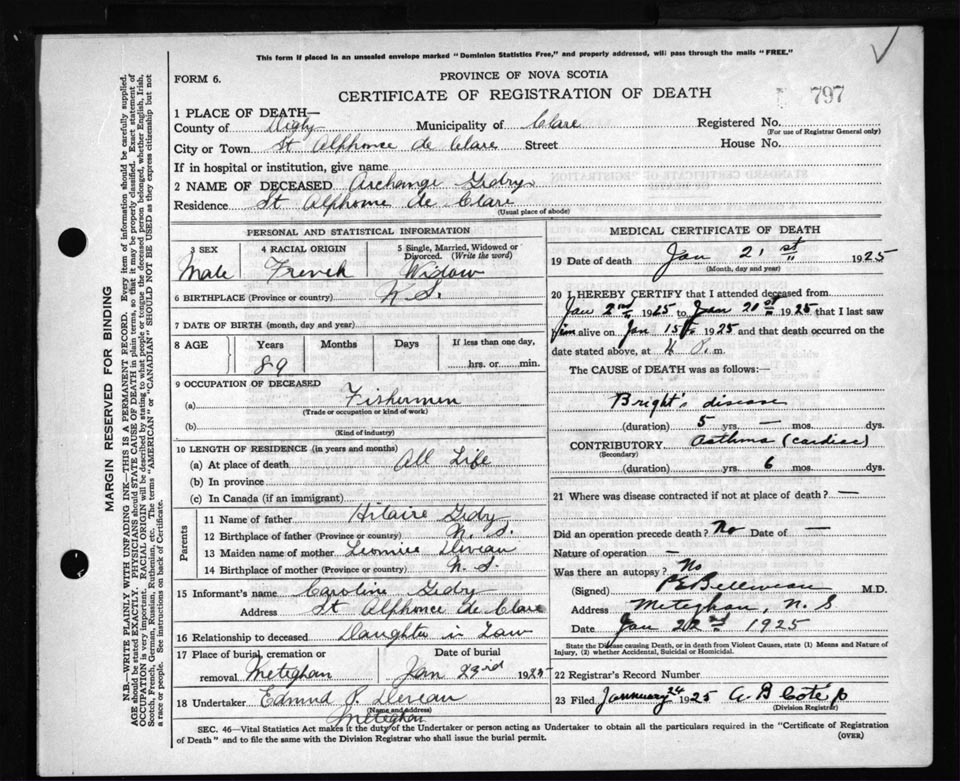 This form if placed in an unsealed envelope marked "Dominion Statistics Free," and properly addressed, will pass through the mails "FREE."
FORM 6.
PROVINCE OF NOVA SCOTIA
CERTIFICATE OF REGISTRATION OF DEATH
797
1 PLACE OF DEATH—
County of Digby Municipality of Clare Registered No.
(For use of Registrar General only)
City or Town St Alphonse de Clare Street House No.
If in hospital or institution, give name
2 NAME OF DECEASED Archange Gidry
Residence St Alphonse de Clare
(Usual place of abode)
PERSONAL AND STATISTICAL INFORMATION
3 SEX 4 RACIAL ORIGIN 5 Single, Married, Widowed or Divorced. (Write the word)
Male French Widow
6 BIRTHPLACE (Province or country) N.S.
7 DATE OF BIRTH (month, day and year)
8 AGE Years Months Days If less than one day,
89 hrs. or min.
9 OCCUPATION OF DECEASED
(a) Fishermen
(Trade or occupation or kind of work)
(b)
(Kind of industry)
10 LENGTH OF RESIDENCE (in years and months)
(a) At place of death All Life
(b) In province
(c) In Canada (if an immigrant)
Parents
11 Name of father Hilaire Gidy
12 Birthplace of father (Province or country) N.S.
13 Maiden name of mother Deveau
14 Birthplace of mother (Province or country) N.S.
15 Informant's name Caroline Gidry
Address St Alphonce de Clare
16 Relationship to deceased Daughter in Law
17 Place of burial, cremation or removal Date of burial
Meteghan Jan 23rd 1925
18 Undertaker Edmund P. Deveau
(Name and address)
Meteghan
MEDICAL CERTIFICATE OF DEATH
19 Date of death Jan 21st 1925
(Month, day and year)
20 I HEREBY CERTIFY that I attended deceased from
Jan 2nd 1925 to Jan 1925 that I last saw
him alive on Jan 15th 1925 and that death occurred on the
date stated above, at 4 P.m.
The CAUSE of DEATH was as follows:—
Bright's disease
(duration) 5 yrs. — mos. dys.
CONTRIBUTORY Asthma (cardiac)
(Secondary)
(duration) yrs. 6 mos. dys.
21 Where was disease contracted if not at place of death? —
Did an operation precede death? No Date of —
Nature of operation —
Was there an autopsy? No
(Signed) M.D.
Address Meteghan, N.S
Date Jan 22nd 1925
State the Disease causing Death, or in death from Violent Causes, state (1) Means and Nature of Injury, (2) whether Accidental, Suicidal or Homicidal.
22 Registrar's Record Number
23 Filed January 24 1925
(Division Registrar)
SEC. 46—Vital Statistics Act makes it the duty of the Undertaker or person acting as Undertaker to obtain all the particulars required in the "Certificate of Registration
of Death" and to file the same with the Division Registrar who shall issue the burial permit.
(OVER)
MARGIN RESERVED FOR BINDING
N.B.—WRITE PLAINLY WITH UNFADING INK—THIS IS A PERMANENT RECORD. Every item of information should be carefully supplied.
AGE should be stated EXACTLY. PHYSICIANS should STATE CAUSE OF DEATH in plain terms, so that it may be properly classified. Exact statement of
OCCUPATION is very important. RACIAL ORIGIN will be described by stating to what people or tongue the deceased person belonged, whether English, Irish,
Scotch, French, German, Russian, Ruthenian, etc. The terms "AMERICAN" or "CANADIAN" SHOULD NOT BE USED as they express citizenship but not
a race or people. See instructions on back of Certificate.